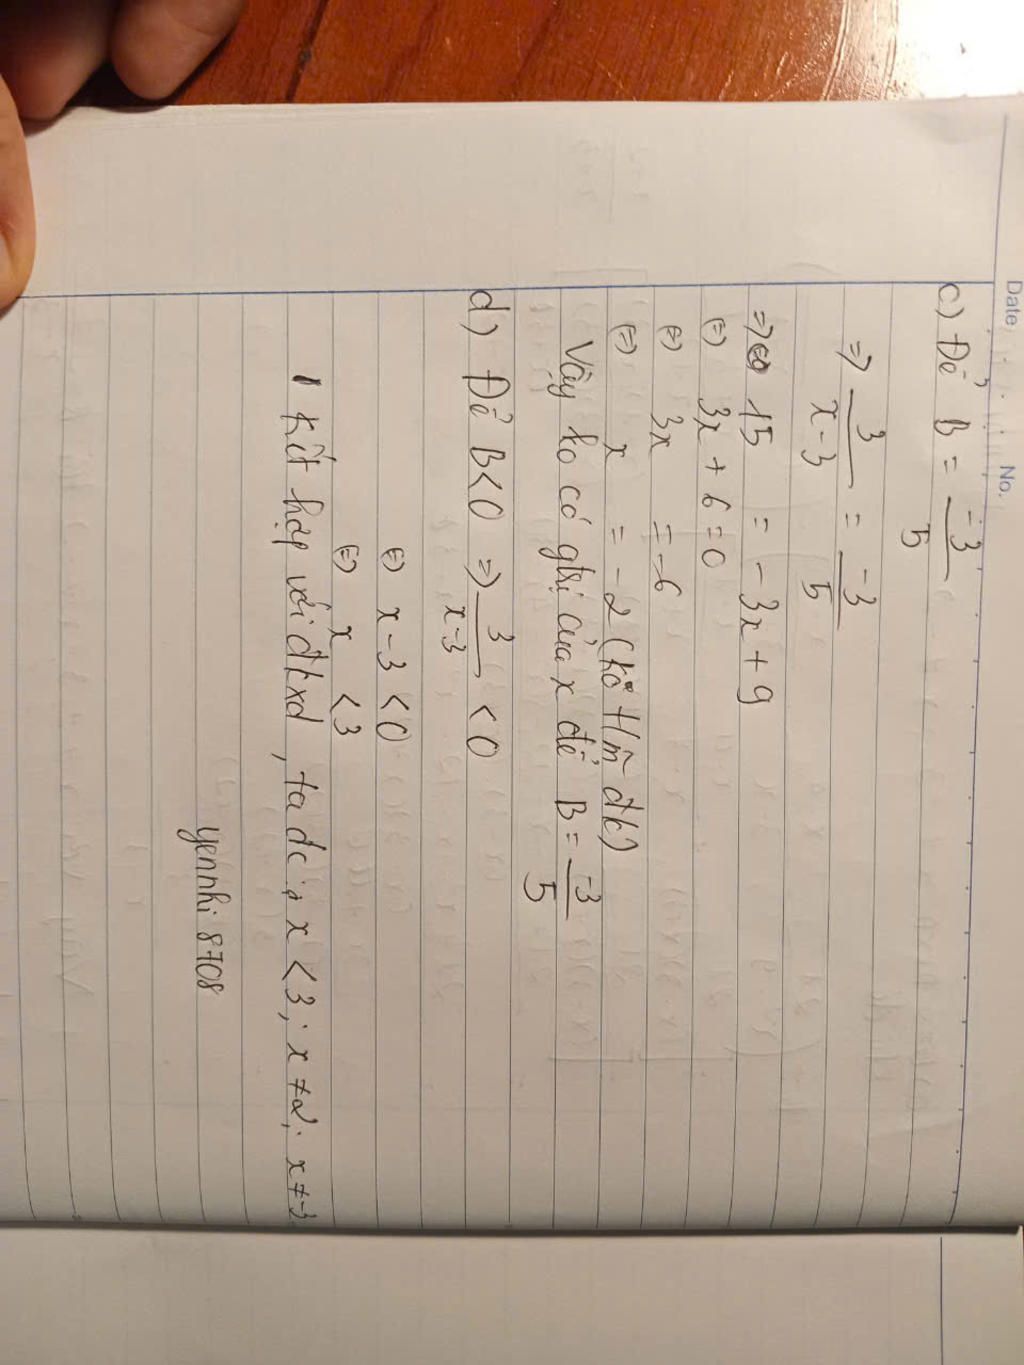 Date No.
c) Để B = -3/5
=> 3/x-3 = -3/5
=> 15 = -3x + 9
(=) 3x + 6 = 0
(=) 3x = -6
(=) x = -2 (ko t/m đk)
Vậy ko có gtrị của x để B = -3/5
d) Để B < 0 => 3/x-3 < 0
(=) x - 3 < 0
(=) x < 3
Kết hợp với đkxđ, ta đc: x < 3; x ≠ 2; x ≠ -3
yennhi 8708